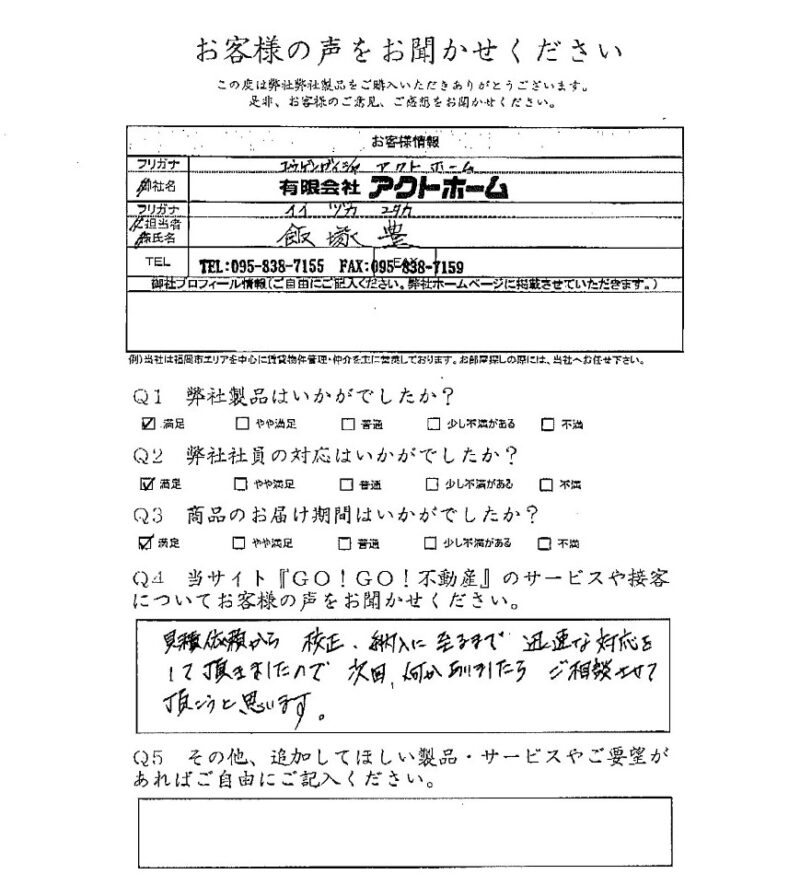 お客様の声をお聞かせください
この度は弊社弊社製品をご購入いただきありがとうございます。
是非、お客様のご意見、ご感想をお聞かせください。
お客様情報
フリガナ ユウゲンガイシャ アクト ホーム
御社名 有限会社 アクトホーム
フリガナ イイ ヅカ ユタカ
ご担当者様氏名 飯塚 豊
TEL TEL:095-838-7155 FAX:095-838-7159
御社プロフィール情報(ご自由にご記入ください。弊社ホームページに掲載させていただきます。)
例)当社は福岡市エリアを中心に賃貸物件管理・仲介を主に営業しております。お部屋探しの際には、当社へお任せ下さい。
Q1 弊社製品はいかがでしたか?
☑ 満足 □ やや満足 □ 普通 □ 少し不満がある □ 不満
Q2 弊社社員の対応はいかがでしたか?
☑ 満足 □ やや満足 □ 普通 □ 少し不満がある □ 不満
Q3 商品のお届け期間はいかがでしたか?
☑ 満足 □ やや満足 □ 普通 □ 少し不満がある □ 不満
Q4 当サイト『GO!GO!不動産』のサービスや接客
についてお客様の声をお聞かせください。
見積依頼から 校正、納入に至るまで 迅速な対応を
して頂きましたので 次回、何かありましたら ご相談させて
頂こうと思います。
Q5 その他、追加してほしい製品・サービスやご要望が
あればご自由にご記入ください。